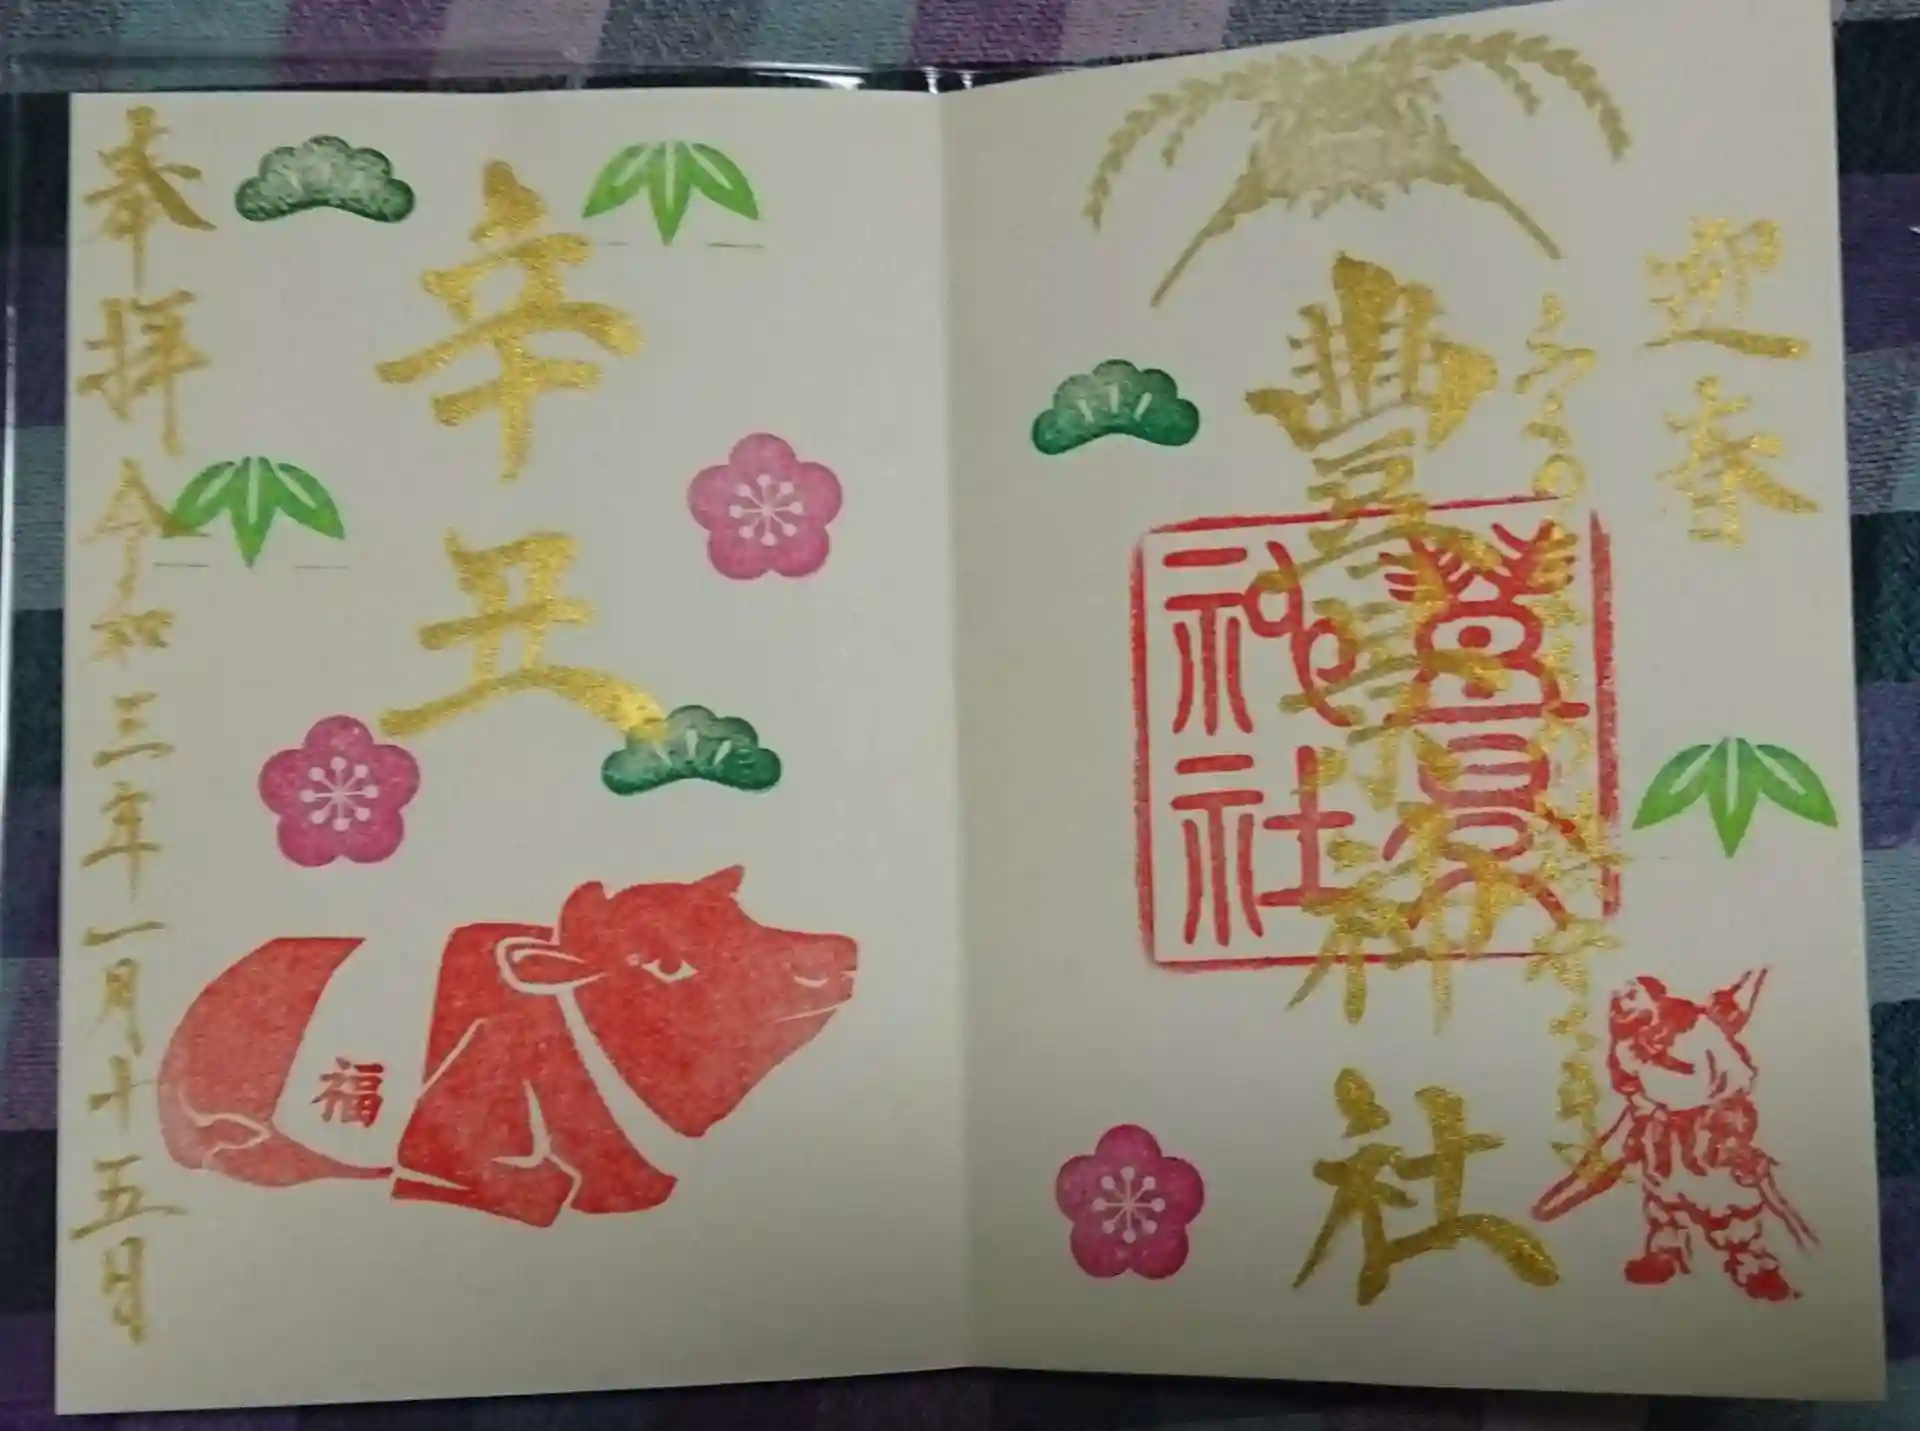 迎春
豊景神社
豊景神社
辛丑
福
奉拝 令和三年一月十五日